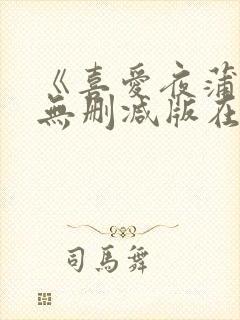 《喜愛夜蒲
無删减版在
司馬舞